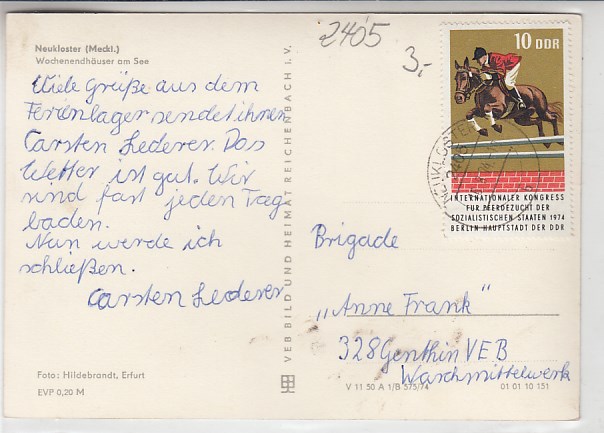 Neukloster (Meckl.)
Wochenendhäuser am See
Viele Grüße aus dem
Ferienlager sendet ihnen
Carsten Lederer. Das
Wetter ist gut. Wir
sind fast jeden Tag
baden.
Nun werde ich
schließen.
Carsten Lederer
Foto: Hildebrandt, Erfurt
EVP 0,20 M
VEB BILD UND HEIMAT REICHENBACH I. V.
2405
3,-
10 DDR
INTERNATIONALER KONGRESS
FÜR PFERDEZUCHT DER
SOZIALISTISCHEN STAATEN 1974
BERLIN HAUPTSTADT DER DDR
NEUKLOSTER
2405
Brigade
„Anne Frank"
328 Genthin VEB
Waschmittelwerk
V 11 50 A 1/B 575/74
01 01 10 151